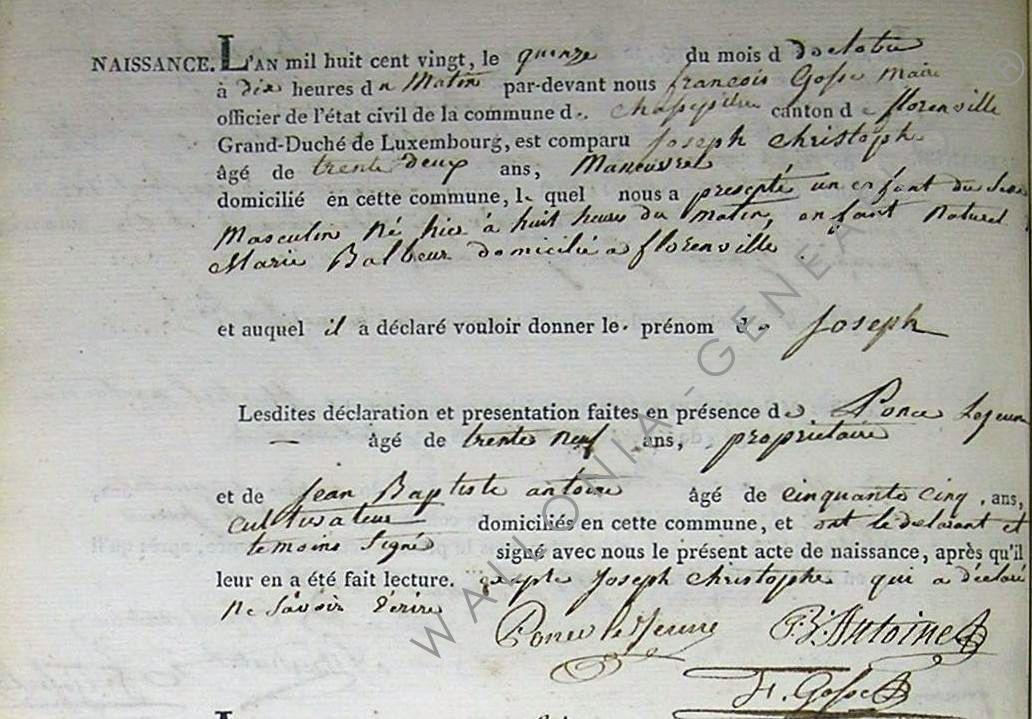 NAISSANCE. L'AN mil huit cent vingt, le quinze du mois d doctobre
à dix heures du Matin par-devant nous françois Gosse Maire
officier de l'état civil de la commune d.. Chassepierre canton de florenville
Grand-Duché de Luxembourg, est comparu Joseph Christophe
âgé de trente deux ans, Maneuvre
domicilié en cette commune, le quel nous a presepté un enfant du Sexe
Masculin Né hier à huit heures du matin, enfant Naturel
Marie Balbeur domicilié a florenville.
et auquel il a déclaré vouloir donner le. prénom de Joseph
Lesdites déclaration et presentation faites en présence de Ponce Lejeune
— âgé de trente neuf ans, proprietaire
et de Jean Baptiste antoine âgé de cinquante cinq, ans,
cultivateur domiciliés en cette commune, et ont le declarant et
temoins signé signé avec nous le présent acte de naissance, après qu'il
leur en a été fait lecture. Joseph Christophe qui a déclaré
Ne Savoir Ecrire
Ponce le Jeune
Antoine
F. Gosse
WALLONIA-GENEA
®